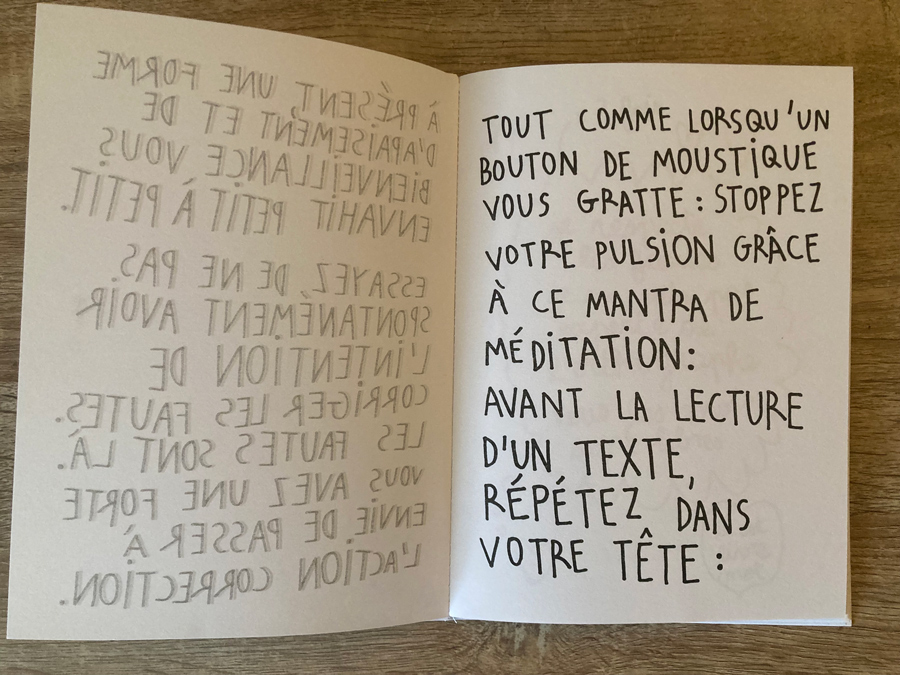 À PRÉSENT, UNE FORME
D'APAISEMENT ET DE
BIENVEILLANCE VOUS
ENVAHIT PETIT À PETIT.
ESSAYEZ, DE NE PAS
SPONTANÉMENT AVOIR
L'INTENTION DE
CORRIGER LES FAUTES.
LES FAUTES SONT LÀ.
VOUS AVEZ UNE FORTE
ENVIE DE PASSER À
L'ACTION CORRECTION.
TOUT COMME LORSQU'UN
BOUTON DE MOUSTIQUE
VOUS GRATTE : STOPPEZ
VOTRE PULSION GRÂCE
À CE MANTRA DE
MÉDITATION:
AVANT LA LECTURE
D'UN TEXTE,
RÉPÉTEZ DANS
VOTRE TÊTE :